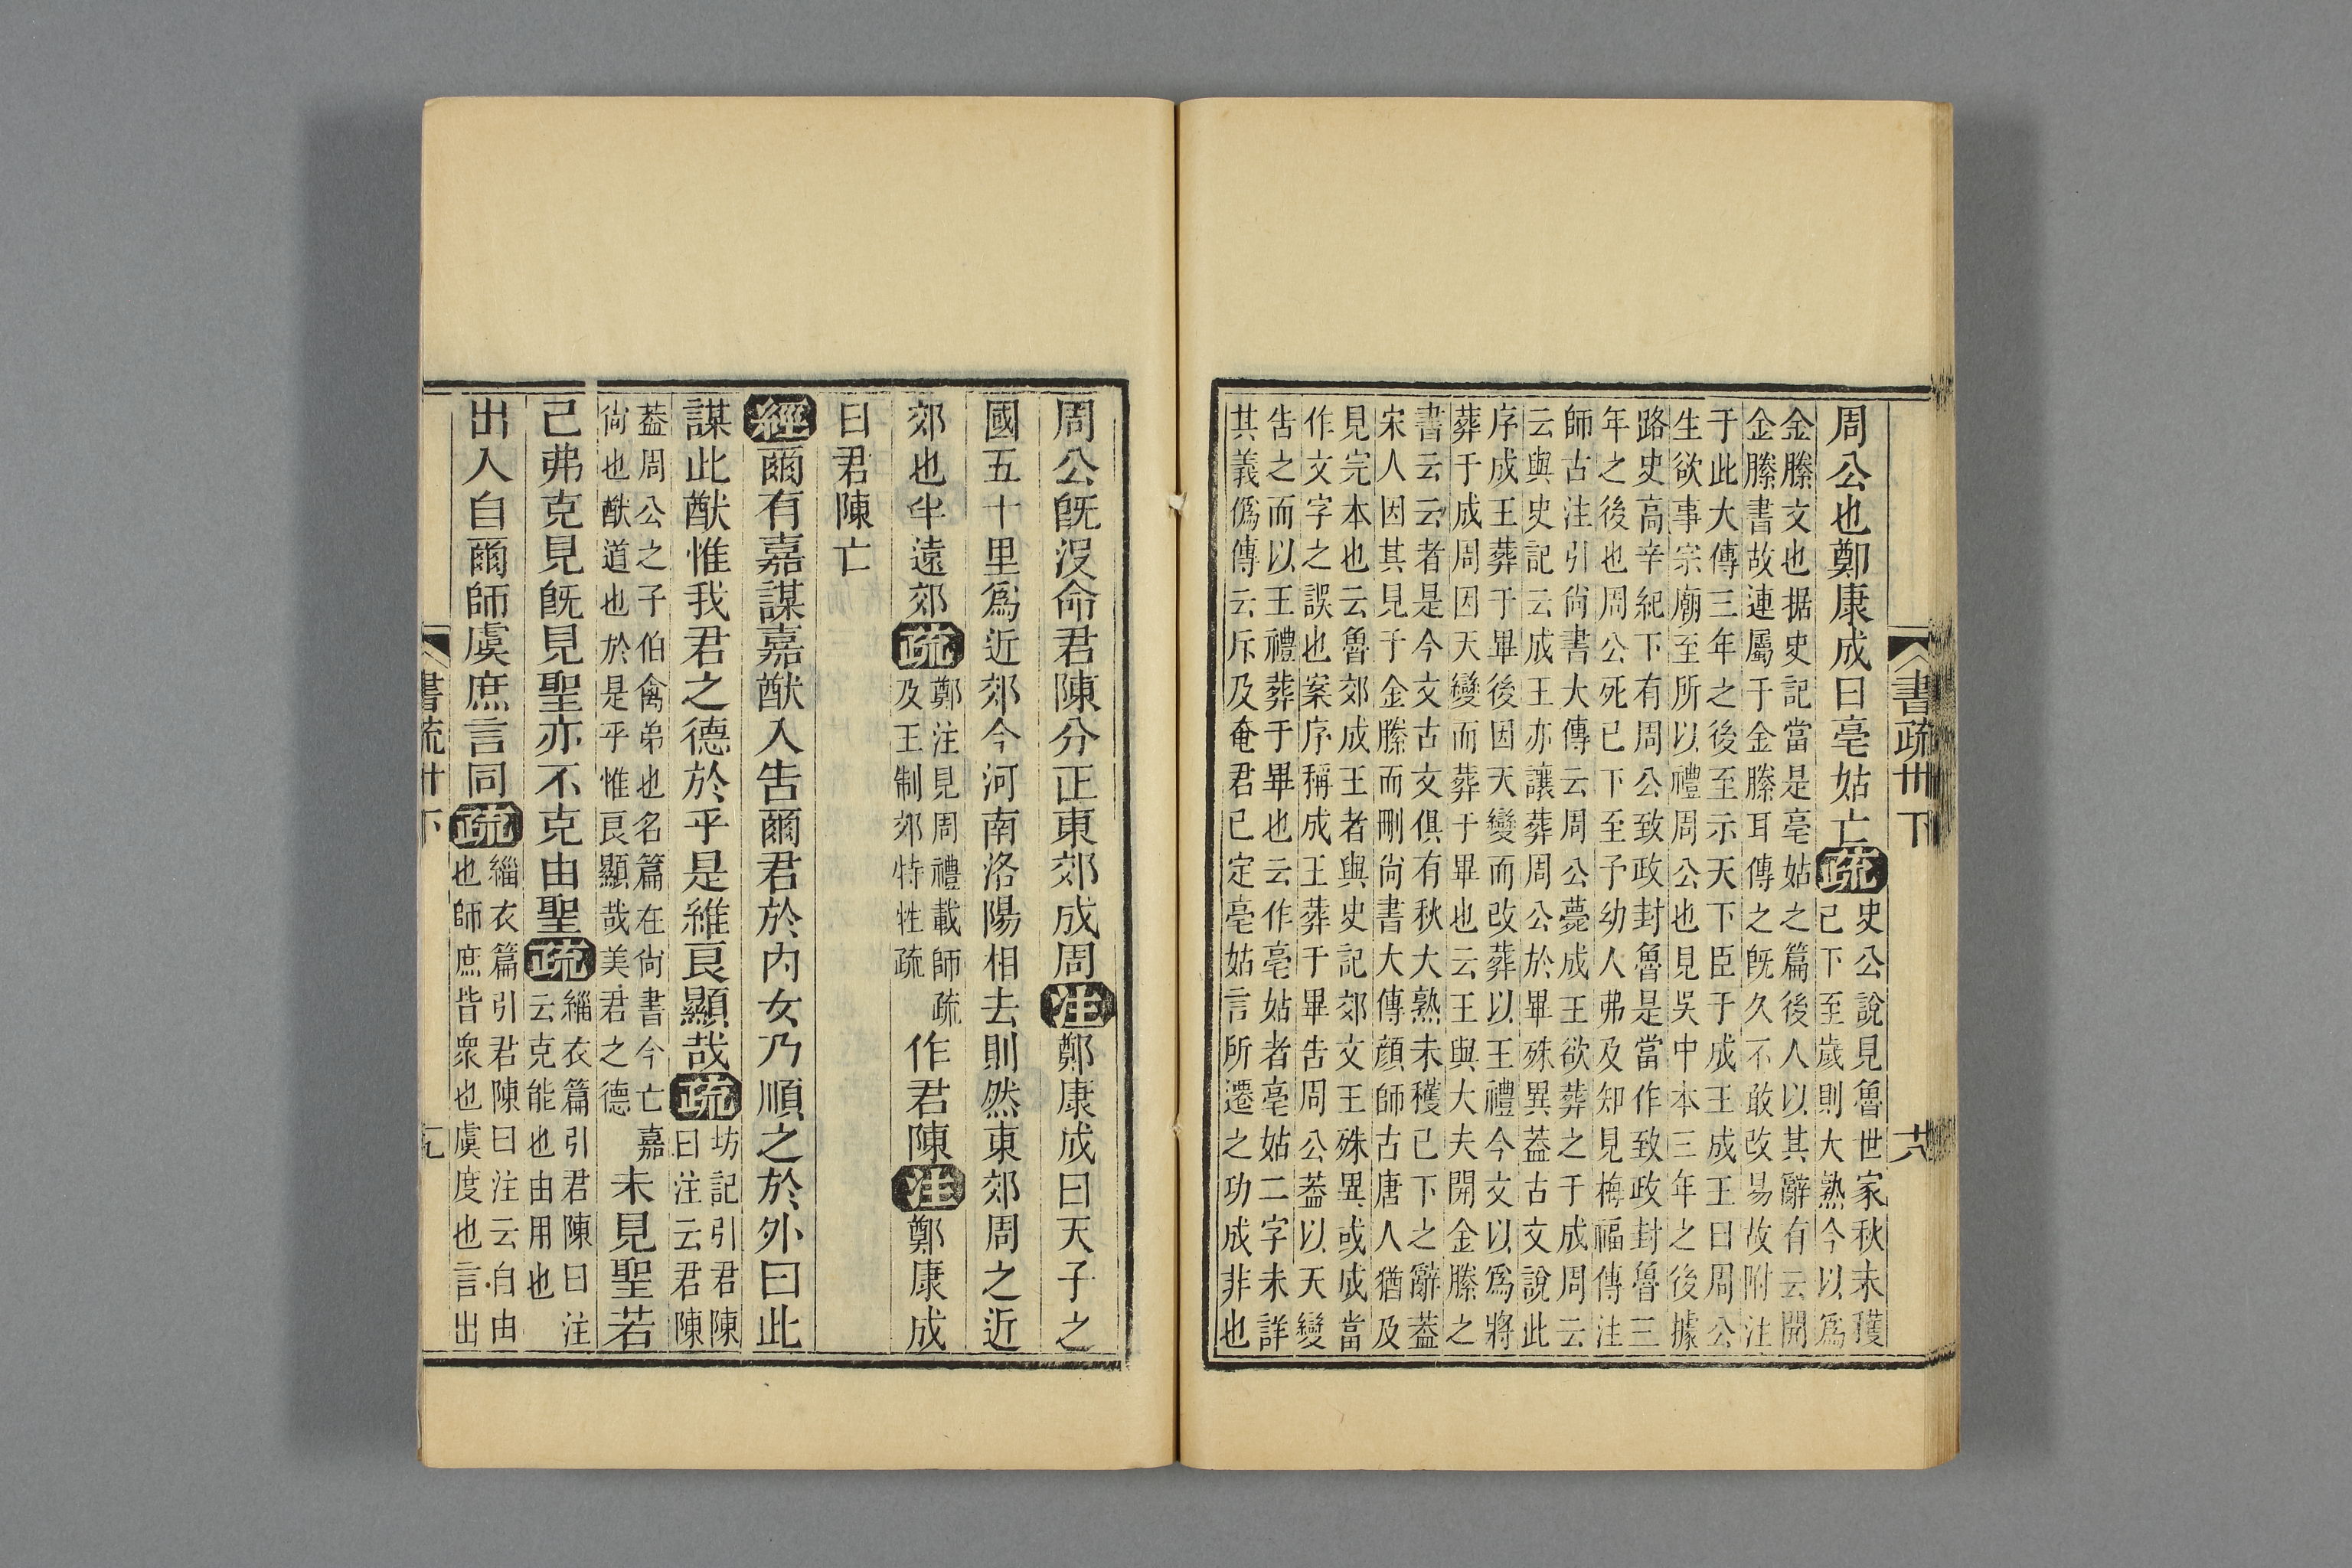 書疏卅下 十八
周公也鄭康成曰亳姑亡疏
史公說見魯世家秋未穫
已下至歲則大熟今以爲
金縢文也据史記當是亳姑之篇後人以其辭有云開
金縢書故連屬于金縢耳傳之旣久不敢改易故附注
于此大傳三年之後至示天下臣于成王成王曰周公
生欲事宗廟至所以禮周公也見吳中本三年之後據
路史高辛紀下有周公致政封魯是當作致政封魯三
年之後也周公死已下至予幼人弗及知見梅福傳注
師古注引尙書大傳云周公薨成王欲葬之于成周云
云與史記云成王亦讓葬周公於畢殊異葢古文說此
序成王葬于畢後因天變而改葬以王禮今文以爲將
葬于成周因天變而葬于畢也云王與大夫開金縢之
書云云者是今文古文俱有秋大熟未穫已下之辭葢
宋人因其見于金縢而刪尙書大傳顔師古唐人猶及
見完本也云魯郊成王者與史記郊文王殊異或成當
作文字之誤也案序稱成王葬于畢告周公葢以天變
告之而以王禮葬于畢也云作亳姑者亳姑二字未詳
其義僞傳云斥及奄君已定亳姑言所遷之功成非也
周公旣沒命君陳分正東郊成周注鄭康成曰天子之
國五十里爲近郊今河南洛陽相去則然東郊周之近
郊也半遠郊疏
鄭注見周禮載師疏
及王制郊特牲疏
作君陳注鄭康成
曰君陳亡
經爾有嘉謀嘉猷入告爾君於內女乃順之於外曰此
謀此猷惟我君之德於乎是維良顯哉疏
坊記引君陳
曰注云君陳
葢周公之子伯禽弟也名篇在尙書今亡嘉
尙也猷道也於是乎惟良顯哉美君之德
未見聖若
己弗克見旣見聖亦不克由聖疏
緇衣篇引君陳曰注
云克能也由用也
出入自爾師虞庶言同疏
緇衣篇引君陳曰注云自由
也師庶皆衆也虞度也言出
書疏卅下